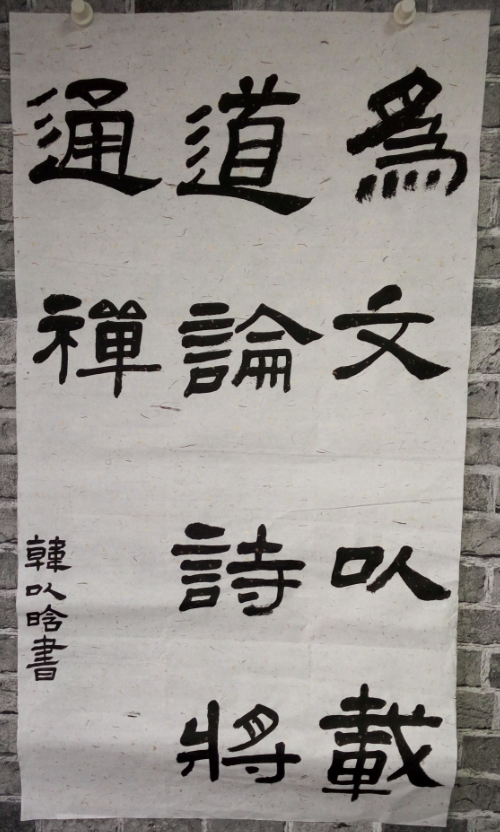 為文以載
道論詩將
通禪
韓以晗書